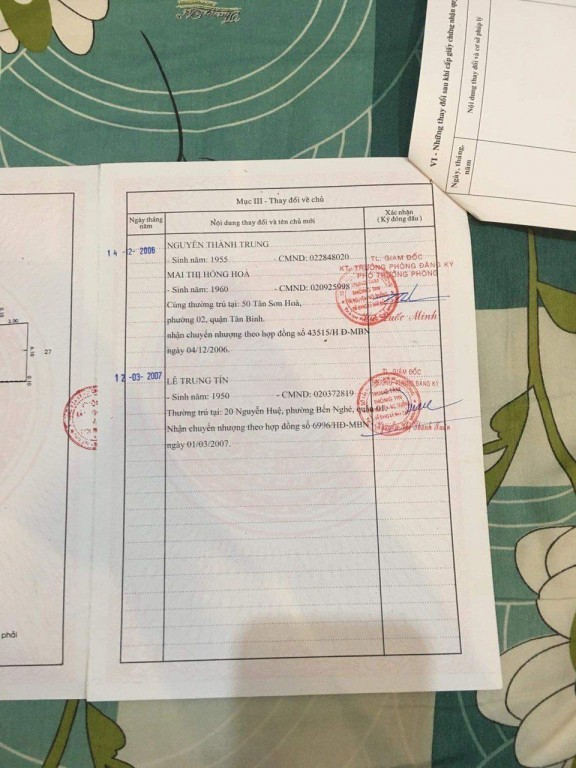 Mục III - Thay đổi về chủ
Ngày tháng năm
Nội dung thay đổi và tên chủ mới
Xác nhận
(Ký đóng dấu)
14 -12- 2006
NGUYỄN THÀNH TRUNG
- Sinh năm: 1955 - CMND: 022848020
MAI THỊ HỒNG HOA
- Sinh năm: 1960 - CMND: 020925998
Cùng thường trú tại: 50 Tân Sơn Hoà,
phường 02, quận Tân Bình.
nhận chuyển nhượng theo hợp đồng số 43515/H Đ-MBN
ngày 04/12/2006.
TL. GIÁM ĐỐC
KT. TRƯỞNG PHÒNG ĐĂNG KÝ
PHÓ TRƯỞNG PHÒNG
Quốc Minh
12 -03- 2007
LÊ TRUNG TÍN
- Sinh năm: 1950 - CMND: 020372819
Thường trú tại: 20 Nguyễn Huệ, phường Bến Nghé, quận 01.
Nhận chuyển nhượng theo hợp đồng số 6996/HĐ-MBN
ngày 01/03/2007.
TL. GIÁM ĐỐC
TRƯỞNG PHÒNG ĐĂNG KÝ
TRUNG TÂM
THÔNG TIN
VI - Những thay đổi sau khi cấp giấy chứng nhận
Ngày, tháng, năm
Nội dung thay đổi và cơ sở pháp lý
27
phải